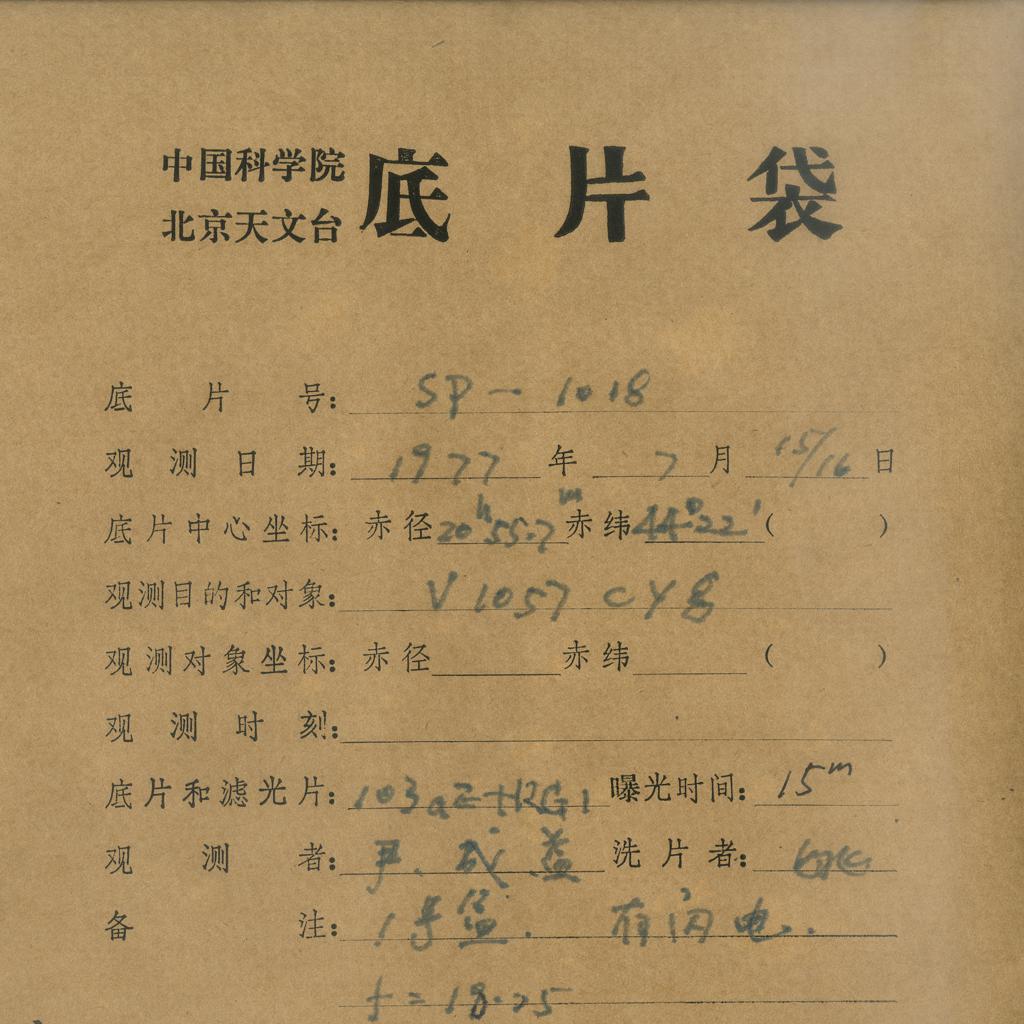 中国科学院
北京天文台
底片袋
底片号: SP-1018
观测日期: 1977年 7月 15/16日
底片中心坐标: 赤径 20h55.7m 赤纬 44°22′ ( )
观测目的和对象: V1057 CYg
观测对象坐标: 赤径 赤纬 ( )
观测时刻:
底片和滤光片: 103aE+RG1 曝光时间: 15m
观测者: 尹、成、益 洗片者:
备注: 1号盆. 有闪电.
f=18.25